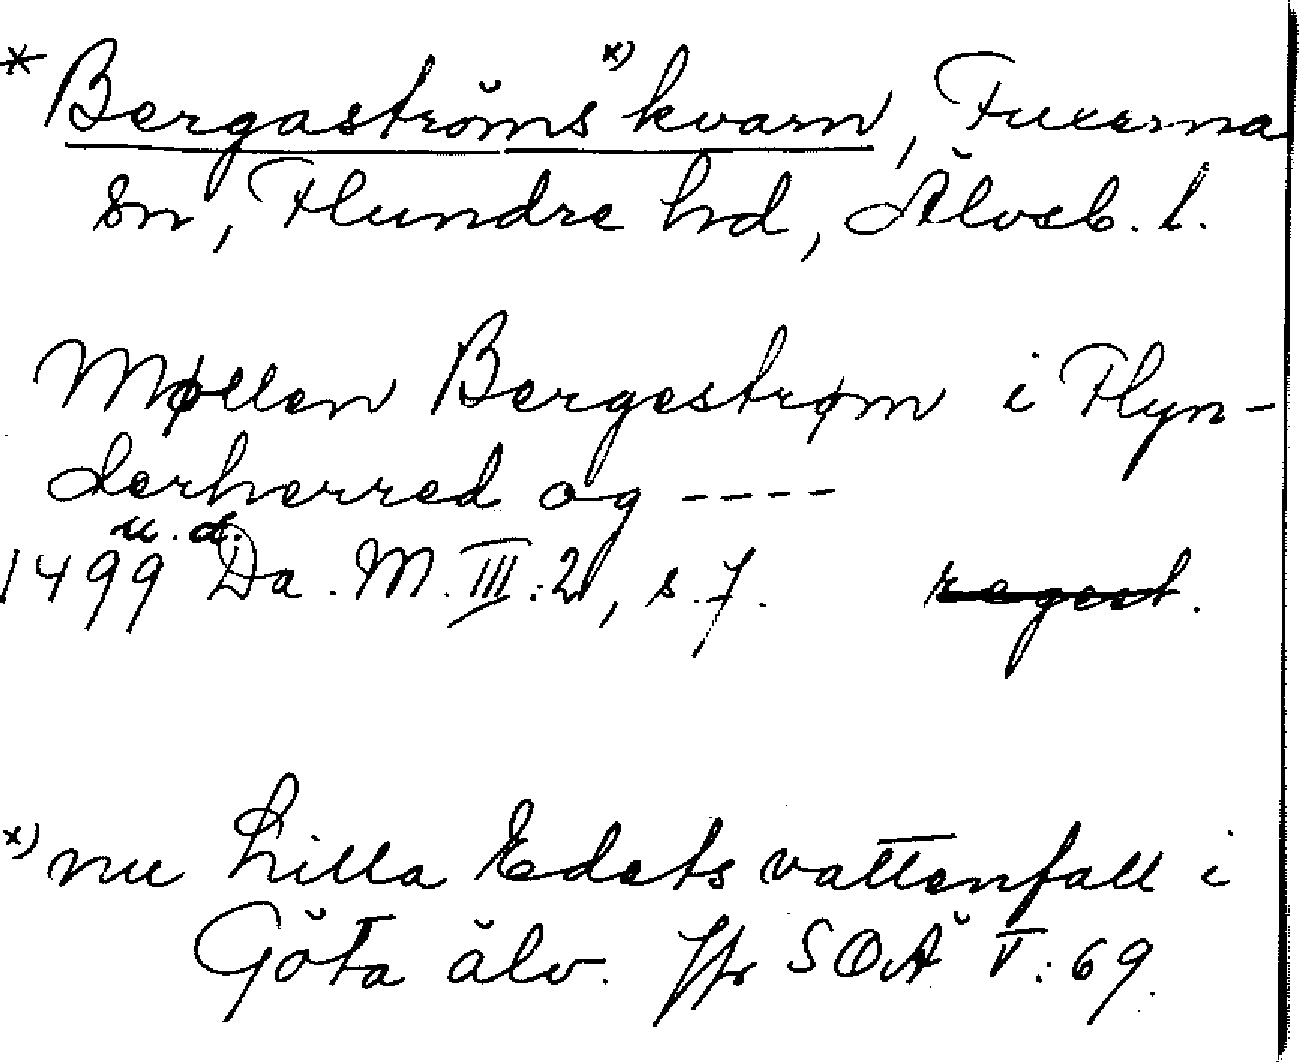 * Bergaströms x) kvarn, Fuxerna
sn, Flundre hd, Älvsb. l.
Møllen Bergestrøm i Flyn-
derherred og ----
u. d.
1499 Da. M. III:2, s. 7. regest.
x) nu Lilla Edets vattenfall i
Göta älv. Jfr SOÄ V:69.